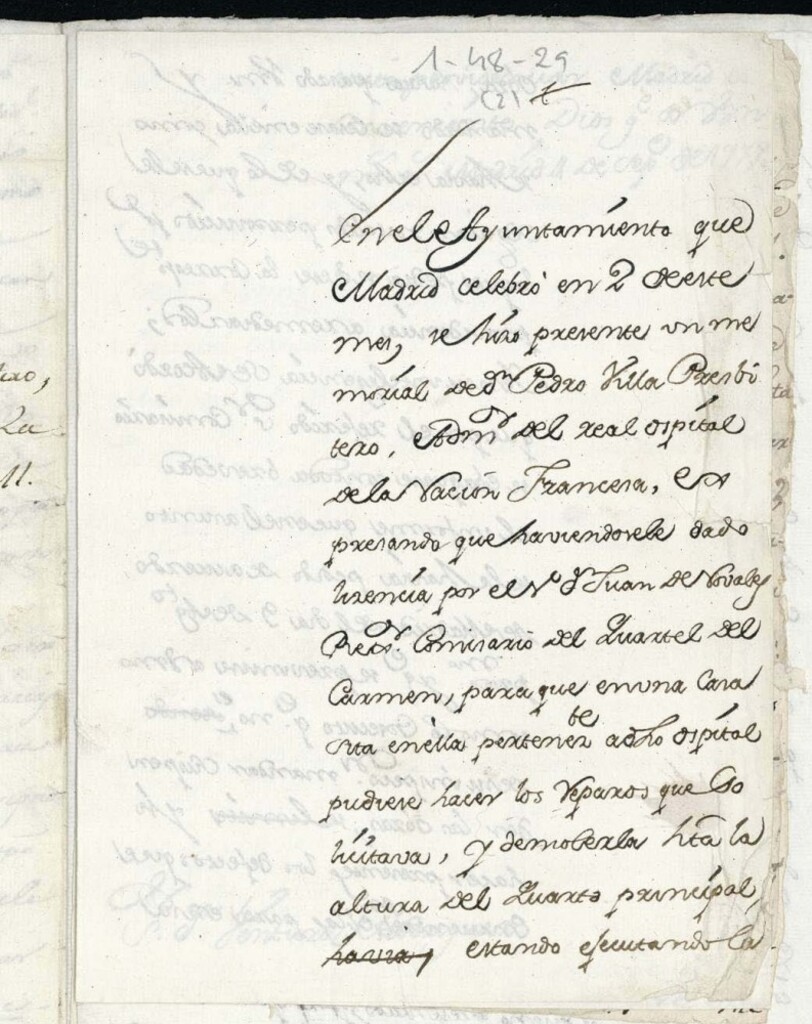 1-48-29
(2) t
En el Ayuntamiento que
Madrid celebró en 2 de este
mes, se hizo presente un me
morial de dn. Pedro Villa Presbi
tero, Admor. del real ospital
de la Nacion Francesa, ex
presando que haviendosele dado
lizencia por el Sr. dn. Juan de Novales
Rexdr. Comisario del Quartel del
Carmen, para que en una Casa
sita en ella pertenezte adho ospital
pudiese hacer los reparos que so
licitava, y demolerla hta la
altura del Quarto principal,
havia, estando ejecutando la